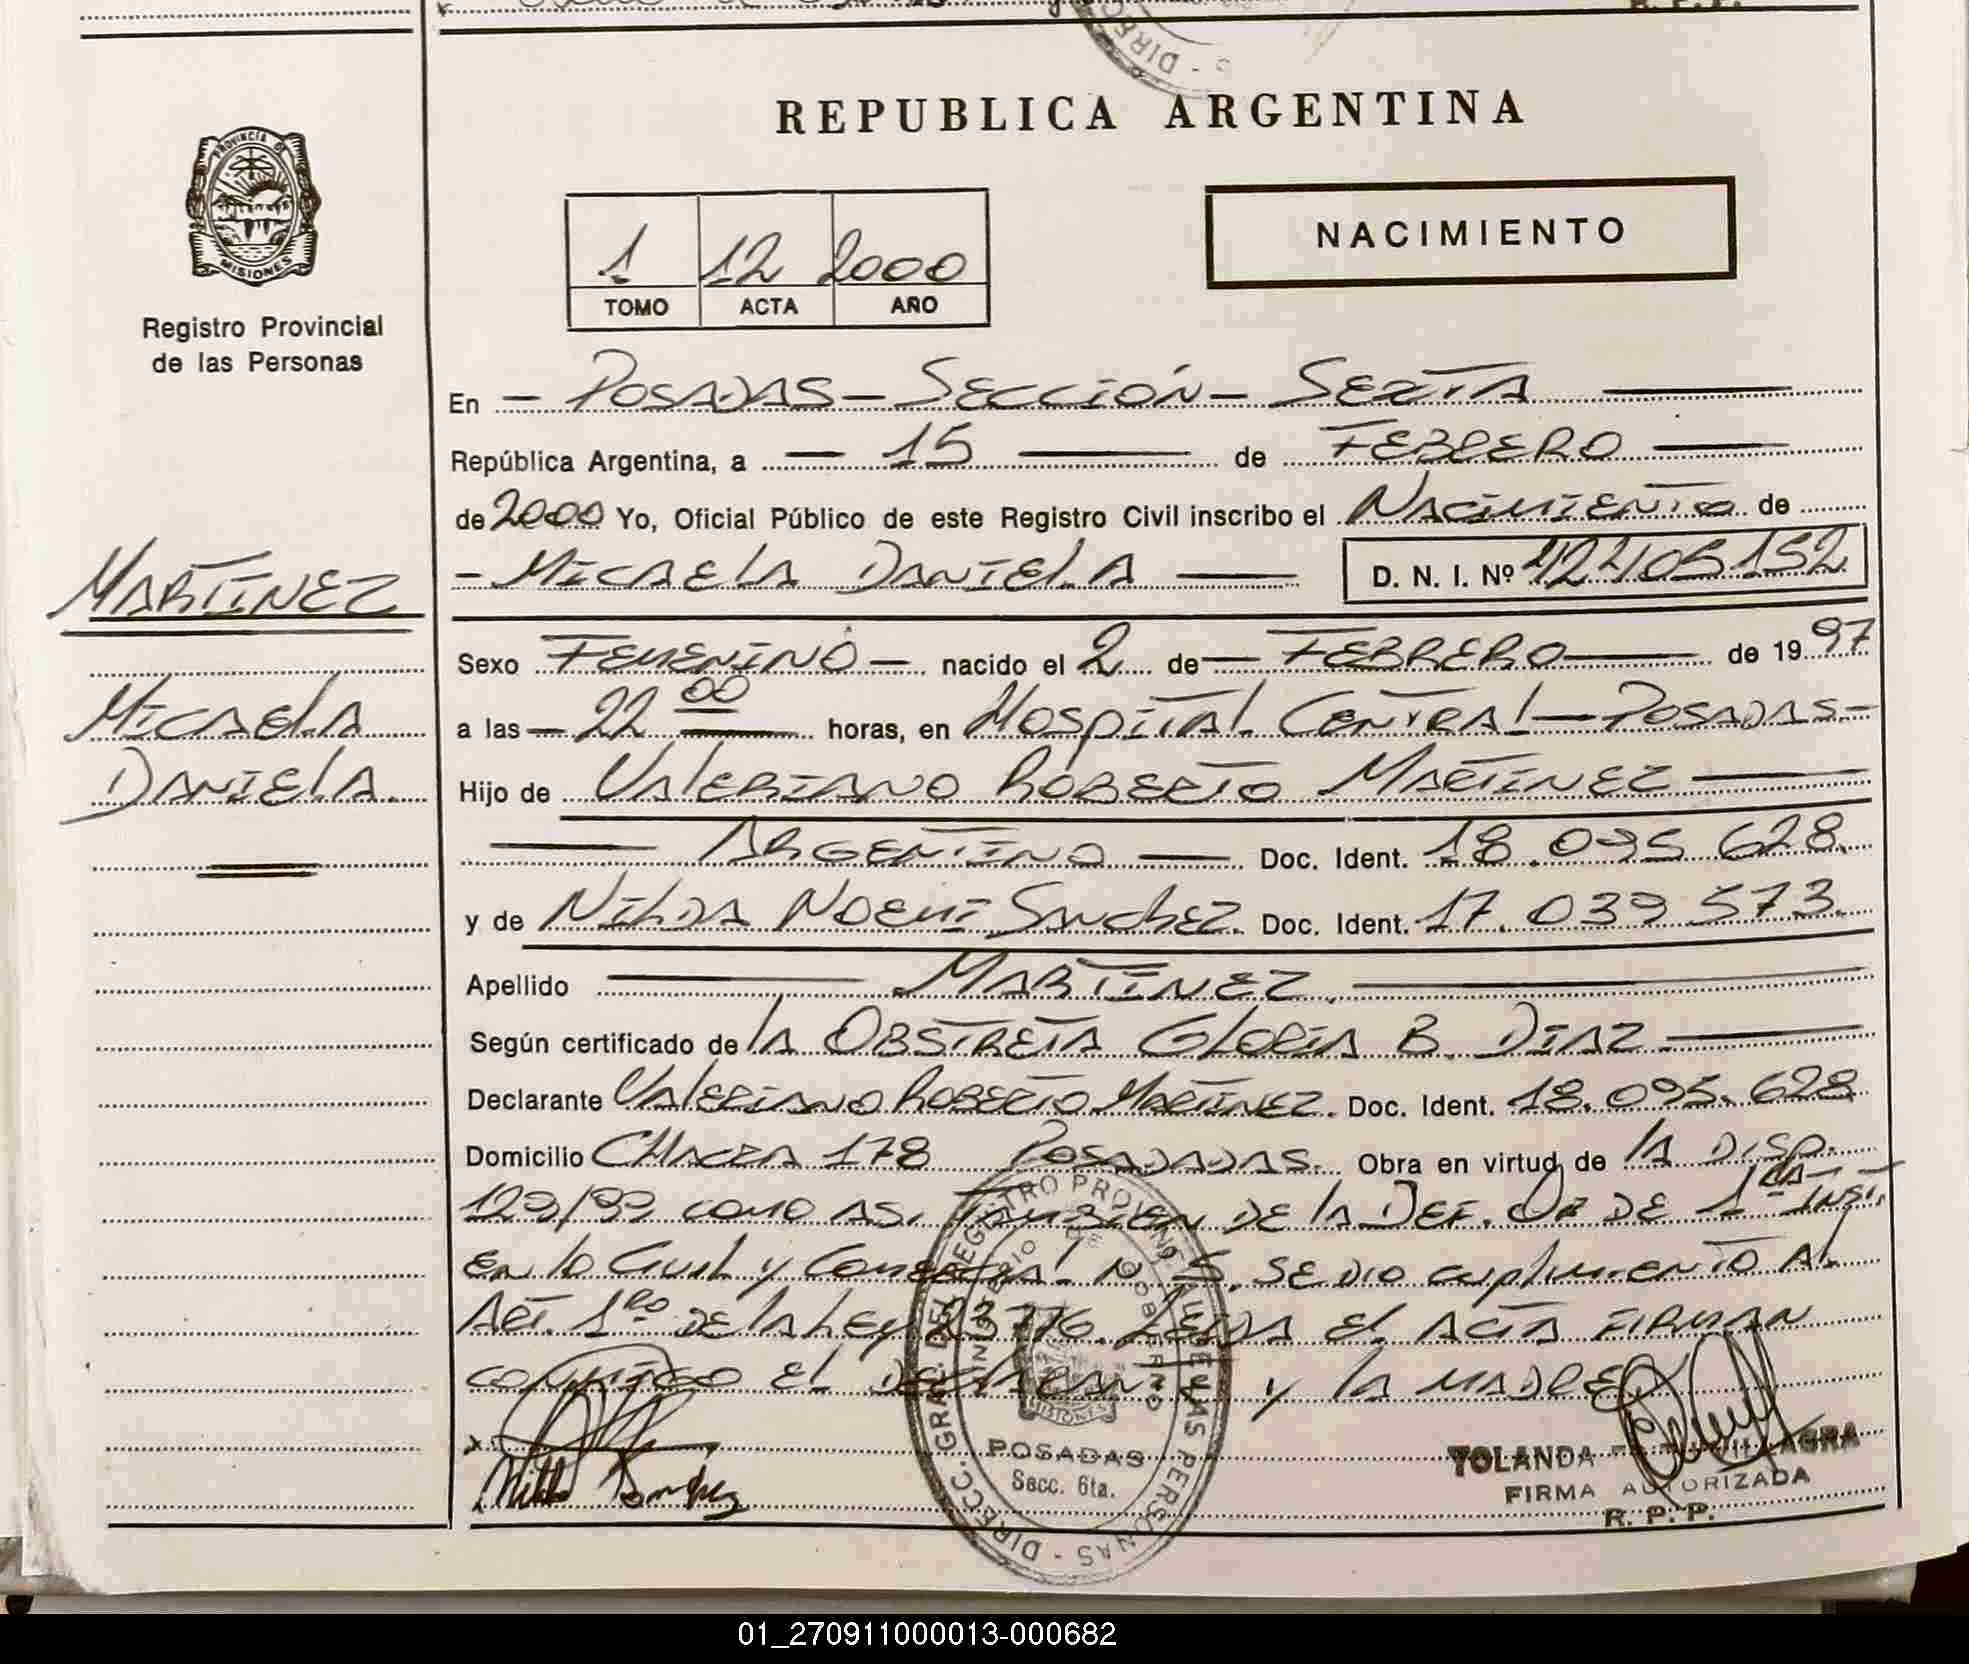 REPUBLICA ARGENTINA
PROVINCIA DE
MISIONES
Registro Provincial
de las Personas
1 12 2000
TOMO ACTA AÑO
NACIMIENTO
En - POSADAS - SECCIÓN - SEXTA
República Argentina, a - 15 de FEBRERO
de 2000 Yo, Oficial Público de este Registro Civil inscribo el NACIMIENTO de
- MICAELA DANIELA D. N. I. Nº
MARTINEZ
MICAELA
DANIELA
Sexo FEMENINO - nacido el 2 de - FEBRERO de 19 97
a las - 22 00 horas, en HOSPITAL CENTRAL - POSADAS -
Hijo de VALERIANO ROBERTO MARTINEZ
ARGENTINO Doc. Ident. 18.095 628.
y de NILDA NOEMI SANCHEZ. Doc. Ident. 17.039 573.
Apellido MARTINEZ
Según certificado de LA OBSTRETA GLORIA B. DIAZ
Declarante VALERIANO ROBERTO MARTINEZ. Doc. Ident. 18.095.628
Domicilio CHACRA 178 POSADADAS. Obra en virtud de LA DISP.
129/99 COMO ASI TAMBIEN DE LA DEF. OF DE 1ª INST.
EN LO CIVIL Y COMERCIAL N 5. SE DIO CUPLIMIENTO AL
ART. 1RO DE LA LEY 23776. LEIDA EL ACTA FIRMAN
CONMIGO EL DECLARANTE Y LA MADRE
Nilda Sanchez
DIRECC. GRAL. DEL REGISTRO PROVINC. DE LAS PERSONAS
MINISTERIO DE GOBIERNO
MISIONES
POSADAS
Secc. 6ta.
YOLANDA
FIRMA AUTORIZADA
R. P. P.
01_270911000013-000682